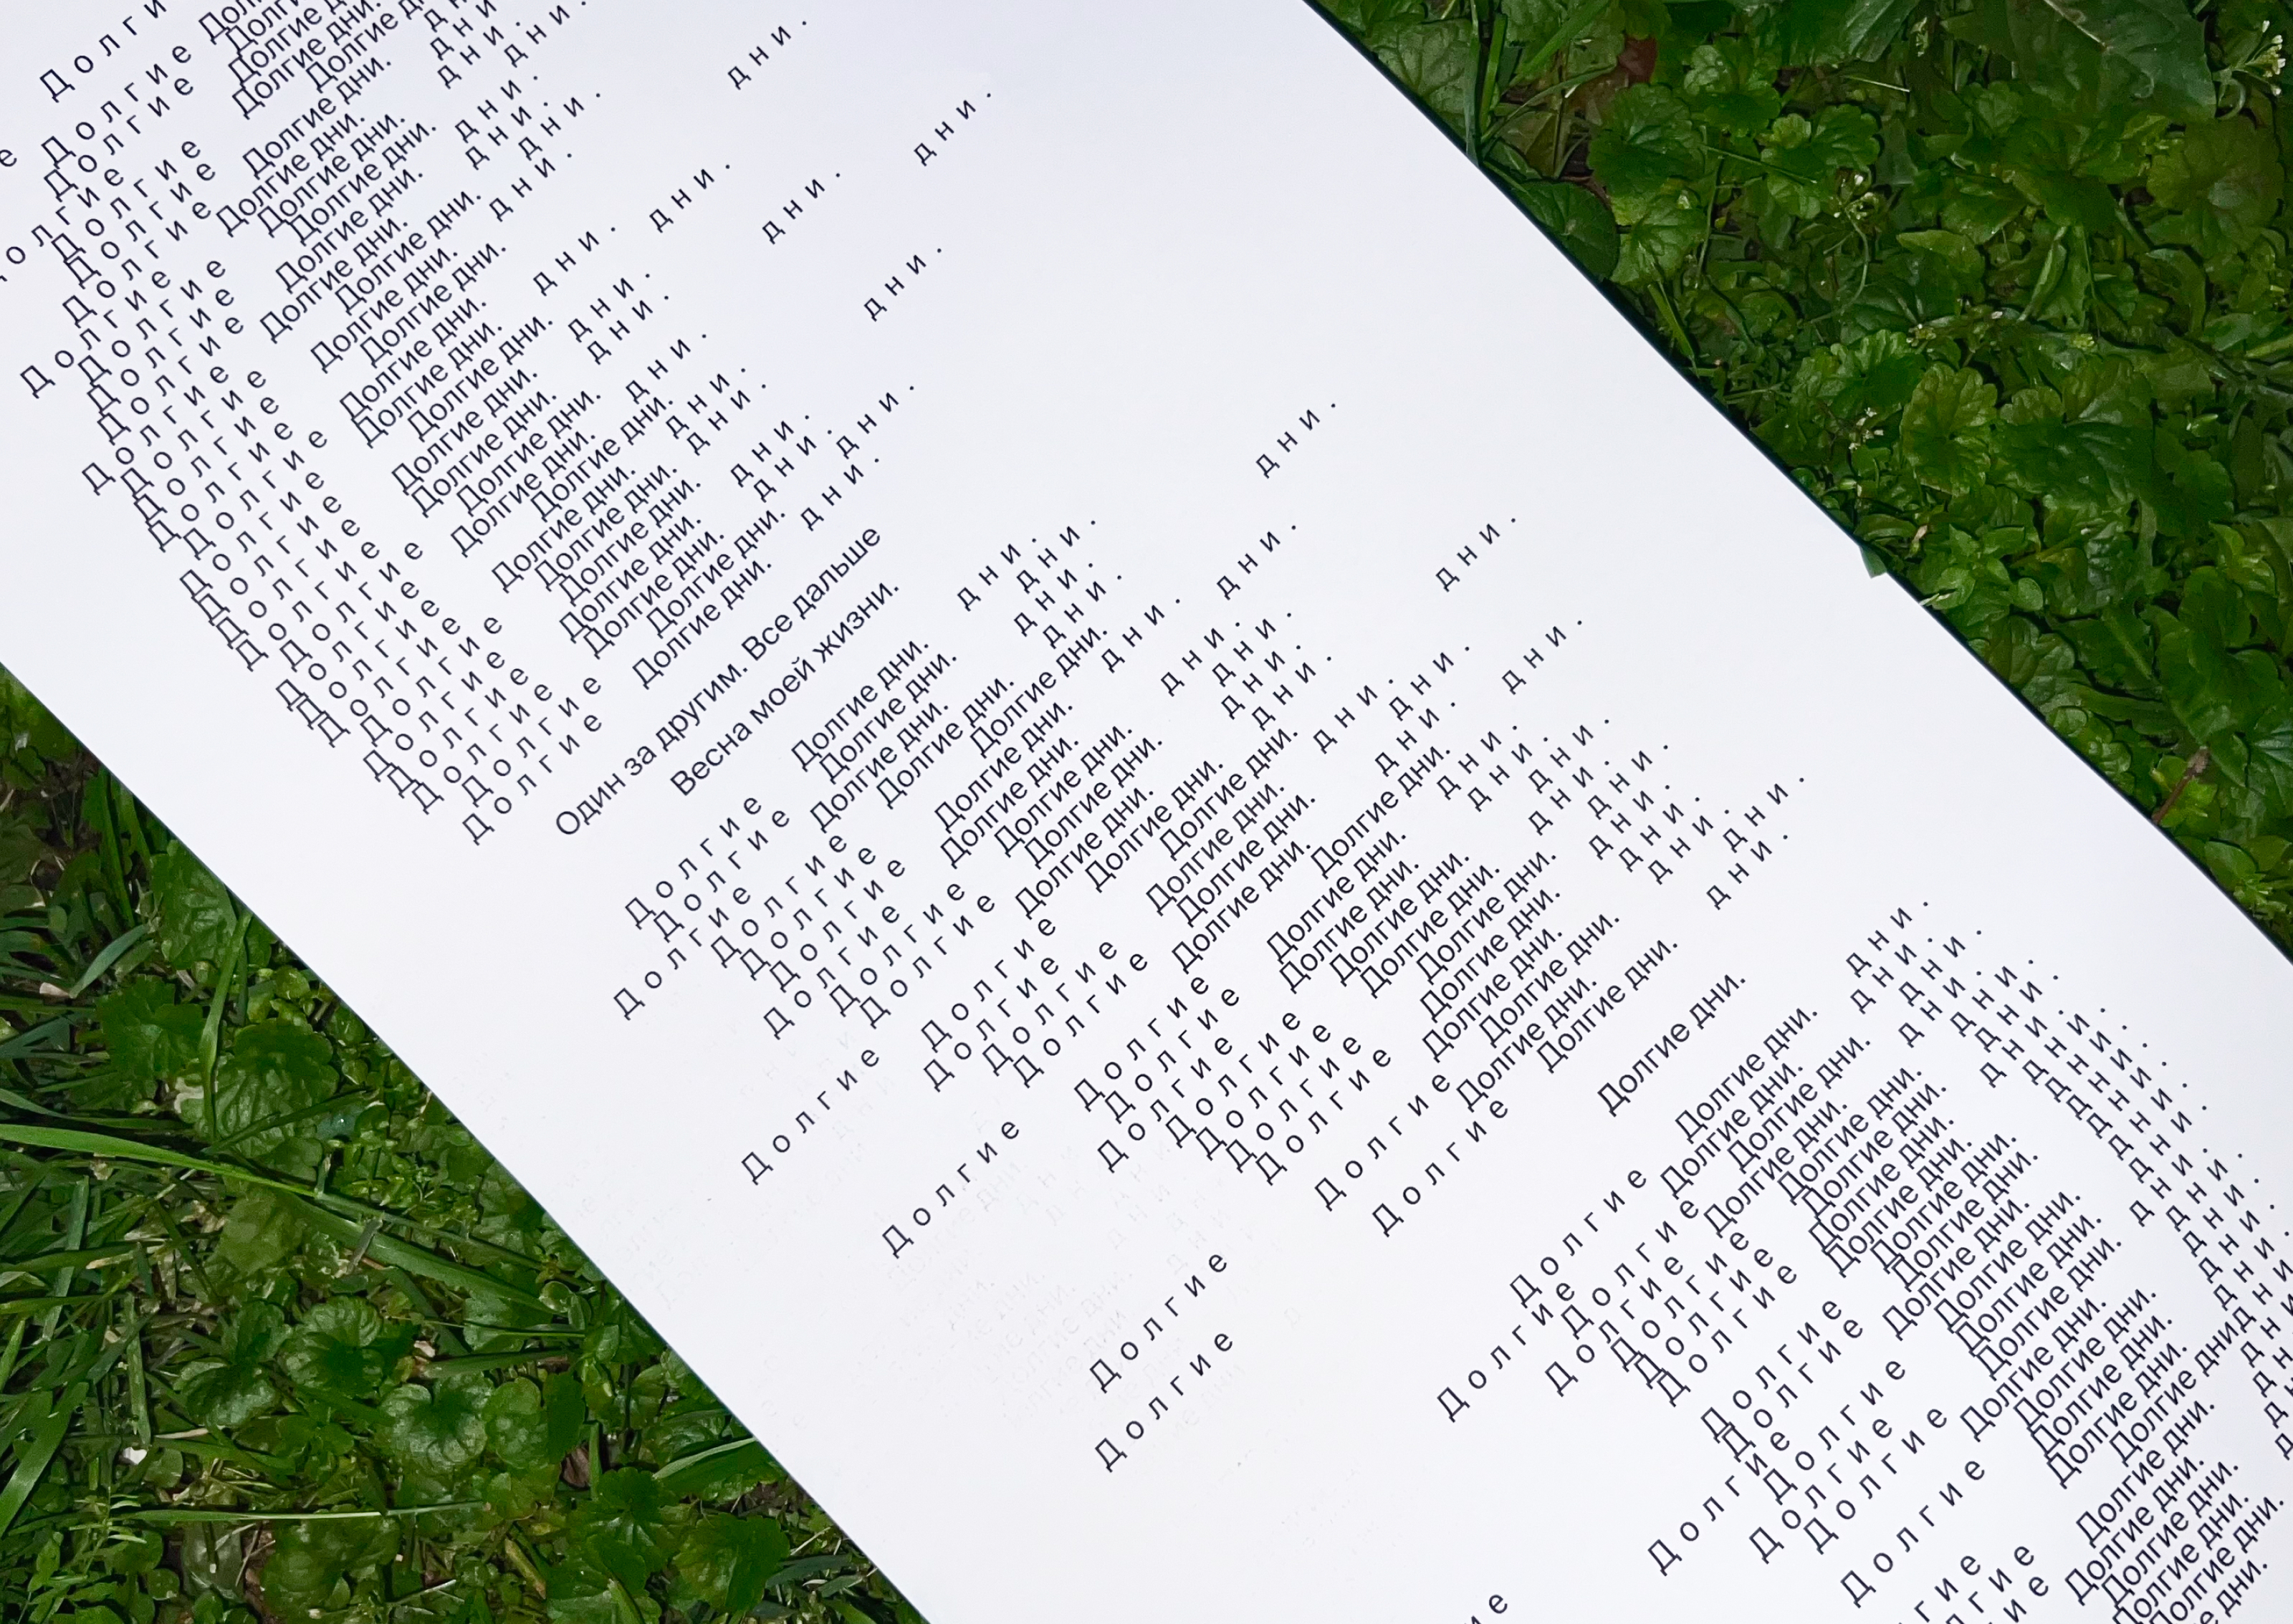 Д о л г и Долги
Д о л г и е Долгие
Д о л г и е Долгие дни. д н и .
Д о л г и е Долгие дни. д н и .
Д о л г и е Долгие дни. д н и .
Д о л г и е Долгие дни. д н и .
Д о л г и е Долгие дни. д н и .
Д о л г и е Долгие дни. д н и .
Д о л г и е Долгие дни. д н и .
Д о л г и е Долгие дни. д н и .
Д о л г и е Долгие дни. д н и .
Д о л г и е Долгие дни. д н и .
Д о л г и е Долгие дни. д н и .
Д о л г и е Долгие дни. д н и .
Д о л г и е Долгие дни. д н и .
Д о л г и е Долгие дни. д н и .
Д о л г и е Долгие дни. д н и .
Д о л г и е Долгие дни. д н и .
Д о л г и е Долгие дни. д н и .
Д о л г и е Долгие дни. д н и .
Д о л г и е Долгие дни. д н и .
Д о л г и е Долгие дни. д н и .
Д о л г и е Долгие дни. д н и .
Д о л г и е Долгие дни. д н и .
Д о л г и е Долгие дни. д н и .
Д о л г и е Долгие дни. д н и .
Д о л г и е Долгие дни. д н и .
Д о л г и е Долгие дни. д н и .
Д о л г и е Долгие дни. д н и .
Один за другим. Все дальше
Весна моей жизни.
Д о л г и е Долгие дни. д н и .
Д о л г и е Долгие дни. д н и .
Д о л г и е Долгие дни. д н и .
Д о л г и е Долгие дни. д н и .
Д о л г и е Долгие дни. д н и .
Д о л г и е Долгие дни. д н и .
Д о л г и е Долгие дни. д н и .
Д о л г и е Долгие дни. д н и .
Д о л г и е Долгие дни. д н и .
Д о л г и е Долгие дни. д н и .
Д о л г и е Долгие дни. д н и .
Д о л г и е Долгие дни. д н и .
Д о л г и е Долгие дни. д н и .
Д о л г и е Долгие дни. д н и .
Д о л г и е Долгие дни. д н и .
Д о л г и е Долгие дни. д н и .
Д о л г и е Долгие дни. д н и .
Д о л г и е Долгие дни. д н и .
Д о л г и е Долгие дни. д н и .
Д о л г и е Долгие дни. д н и .
Д о л г и е Долгие дни. д н и .
Д о л г и е Долгие дни. д н и .
Д о л г и е Долгие дни. д н и .
Д о л г и е Долгие дни. д н и .
Д о л г и е Долгие дни. д н и .
Д о л г и е Долгие дни. д н и .
Д о л г и е Долгие дни. д н и .
Д о л г и е Долгие дни. д н и .
Д о л г и е Долгие дни. д н и .
Д о л г и е Долгие дни. д н и .
Д о л г и е Долгие дни. д н и .
Д о л г и е Долгие дни. д н и .
Д о л г и е Долгие дни. д н и .
Д о л г и е Долгие дни. д н и .
Д о л г и е Долгие дни. д н и .
Д о л г и е Долгие дни. д н и .
Д о л г и е Долгие дни. д н и .
Д о л г и е Долгие дни. д н и .
Д о л г и е Долгие дни. д н и .
Д о л г и е Долгие дни. д н и .
Д о л г и е Долгие дни. д н и .
Д о л г и е Долгие дни. д н и .
Долгие дни. д н и .
Долгие дни. д н и .
Долгие дни. д н и
Долгие дни. д н и
Долгие дни.
Долгие дни.
Долгие дни.